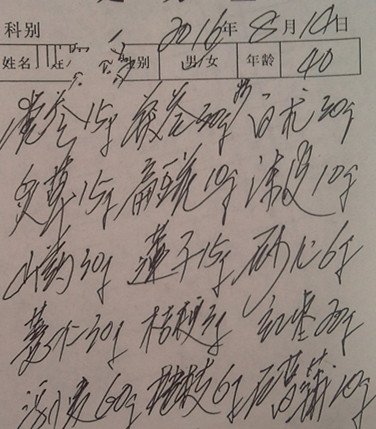 科别 2016年8月14日
姓名 别 男/女 年龄 40
党参15g 茯苓30g 白术30g
炙草15g 扁豆 10g 陈皮10g
山药30g 莲子15g 砂仁6g
薏仁30g 桔梗 g
浮小麦60g 桂枝6g 石菖蒲10g